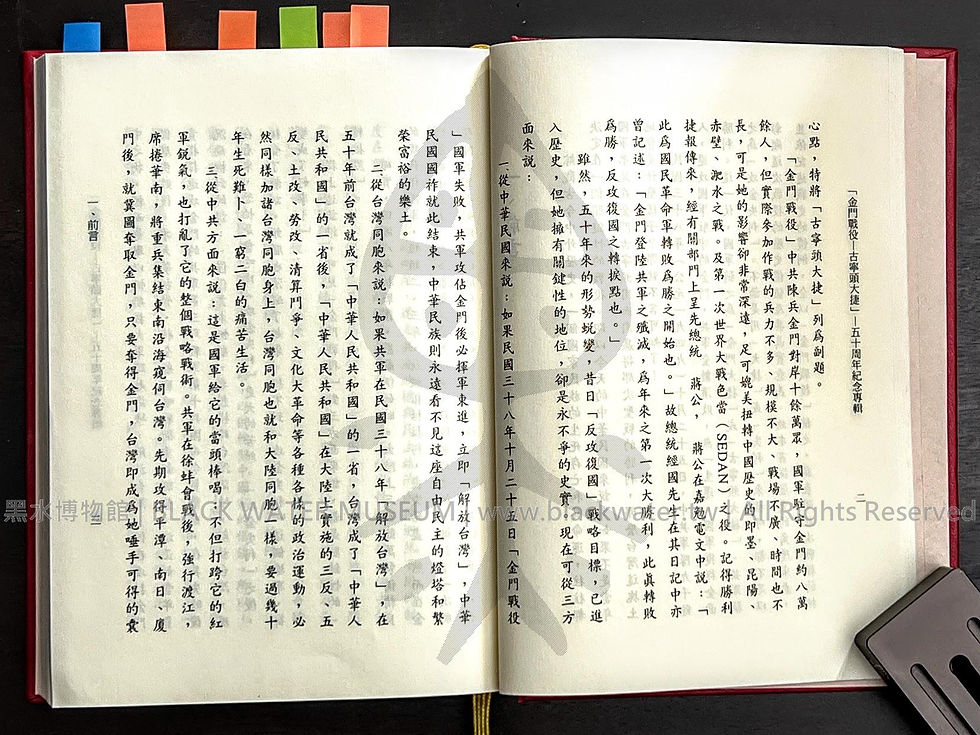 「金門戰役—古寧頭大捷」—五十周年紀念專輯
二
心點，特將「古寧頭大捷」列為副題。
「金門戰役」中共陳兵金門對岸十餘萬眾，國軍防守金門約八萬
餘人，但實際參加作戰的兵力不多、規模不大、戰場不廣、時間也不
長，可是她的影響卻非常深遠，足可媲美扭轉中國歷史的即墨、昆陽、
赤壁、淝水之戰。及第一次世界大戰色當（SEDAN）之役。記得勝利
捷報傳來，經有關部門上呈先總統　蔣公，　蔣公在嘉勉電文中說：「
此為國民革命軍轉敗為勝之開始也。」故總統經國先生在其日記中亦
曾記述：「金門登陸共軍之殲滅，為年來之第一次大勝利，此真轉敗
為勝，反攻復國之轉捩點也。」
雖然，五十年來的形勢蛻變，昔日「反攻復國」戰略目標，已進
入歷史，但她擁有關鍵性的地位，卻是永不爭的史實，現在可從三方
面來說：
一、從中華民國來說：如果民國三十八年十月二十五日「金門戰役
」國軍失敗，共軍攻佔金門後必揮軍東進，立即「解放台灣」，中華
民國國祚就此結束，中華民族則永遠看不見這座自由民主的燈塔和繁
榮富裕的樂土。
二、從台灣同胞來說：如果共軍在民國三十八年「解放台灣」，在
五十年前台灣就成了「中華人民共和國」的一省，台灣成了「中華人
民共和國」的一省後，「中華人民共和國」在大陸上實施的三反、五
反、土改、勞改、清算鬥爭、文化大革命等各種各樣的政治運動，必
然同樣加諸台灣同胞身上，台灣同胞也就和大陸同胞一樣，要過幾十
年生死難卜、一窮二白的痛苦生活。
三、從中共方面來說：這是國軍給它的當頭棒喝，不但打跨它的紅
軍銳氣，也打亂了它的整個戰略戰術。共軍在徐蚌會戰後，強行渡江，
席捲華南，將重兵集結東南沿海窺伺台灣。先期攻得平潭、南日、廈
門後，就冀圖奪取金門，只要奪得金門，台灣即成為地唾手可得的囊
一、前言
三
黑水博物館 | BLACK WATER MUSEUM | www.blackwater.tw | All Rights Reserved